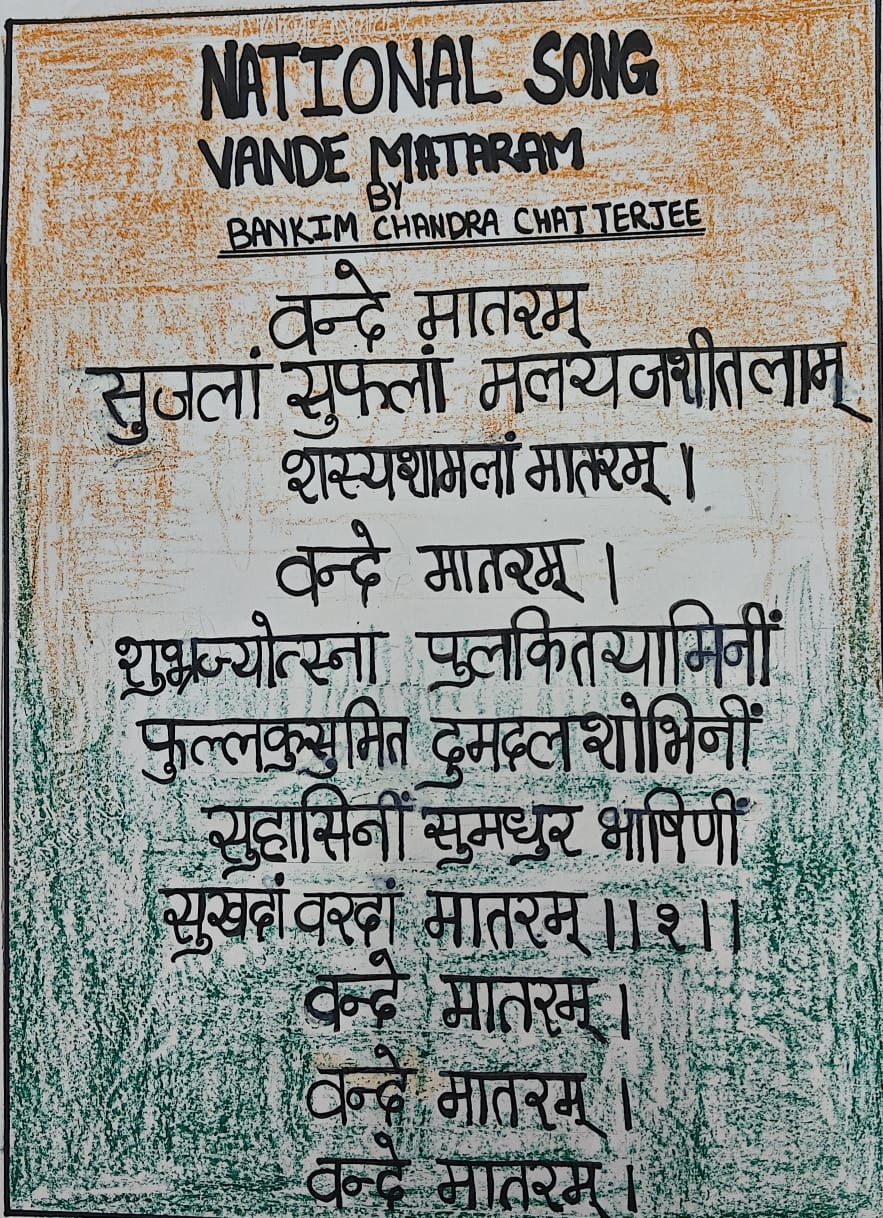 NATIONAL SONG
VANDE MATARAM
BY
BANKIM CHANDRA CHATTERJEE
वन्दे मातरम्
सुजलां सुफलां मलयजशीतलाम्
शस्यशामलां मातरम् ।
वन्दे मातरम् ।
शुभ्रज्योत्स्ना पुलकितयामिनीं
फुल्लकुसुमित दुमदल शोभिनीं
सुहासिनीं सुमधुर भाषिणीं
सुखदां वरदां मातरम् ।। १ ।।
वन्दे मातरम् ।
वन्दे मातरम् ।
वन्दे मातरम् ।